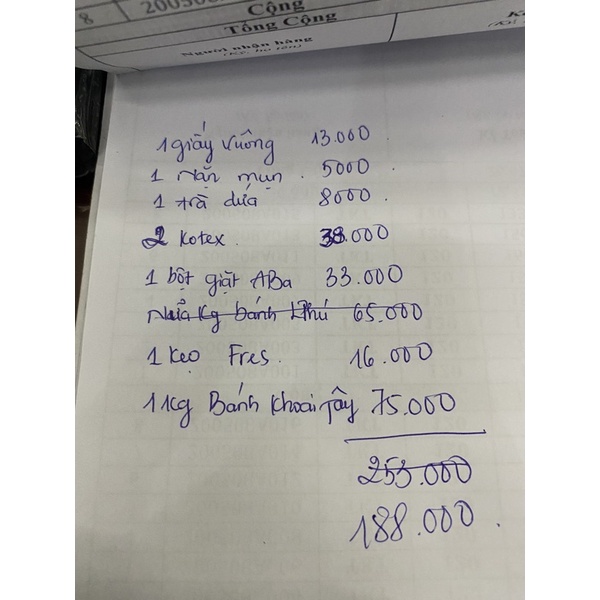 8 20050
Cộng
Tổng Cộng
Người nhận hàng
(Ký, họ tên)
1 giấy vuông 13.000
1 nặn mụn 5000
1 trà dứa 8000
2 Kotex 38.000
1 bột giặt ABa 33.000
nửa kg bánh 65.000
1 kẹo Fres 16.000
1 kg Bánh khoai tây 75.000
253.000
188.000